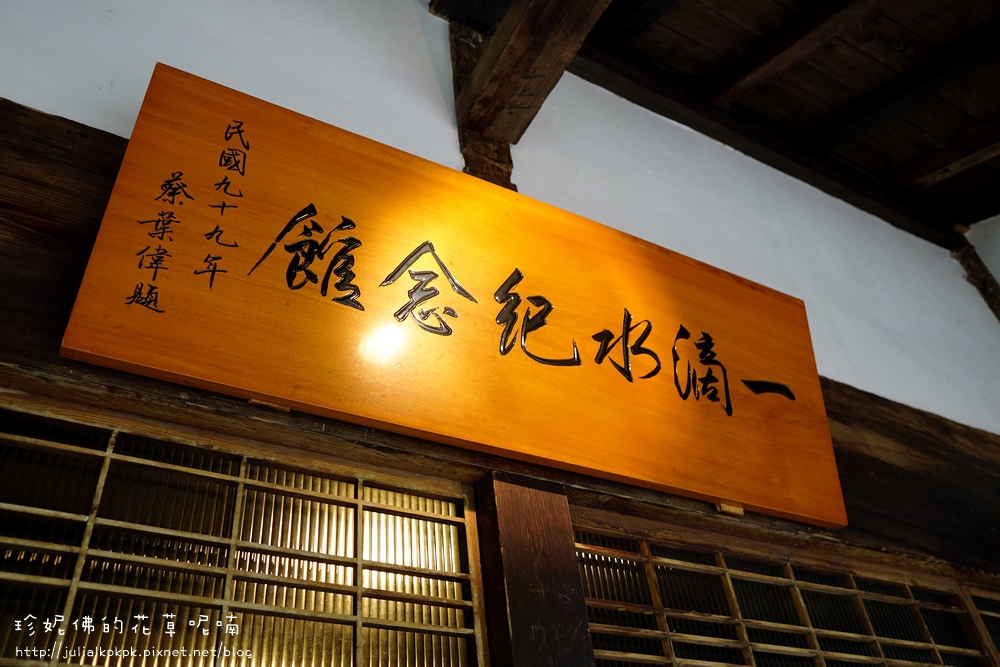 一滴水紀念館
民國九十九年
蔡葉偉題
珍妮佛的花草呢喃
http://julialkpkpk.pixnet.net/blog